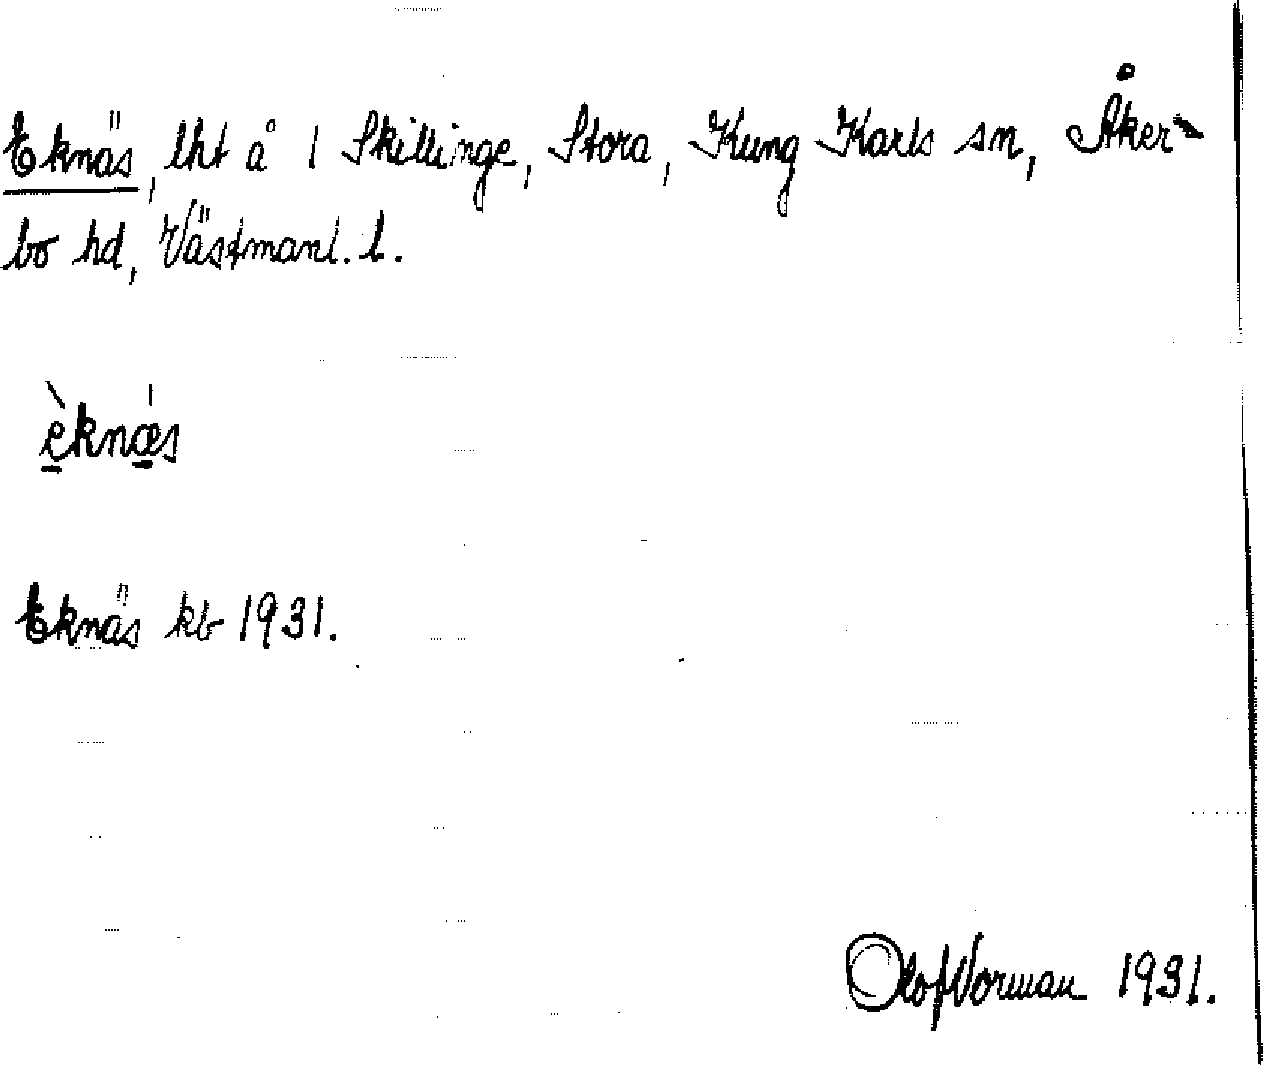 Eknäs, lht å 1 Skillinge, Stora, Kung Karls sn, Åker-
bo hd, Västmanl. l.
èknæs
Eknäs kb 1931.
Olof Norman 1931.